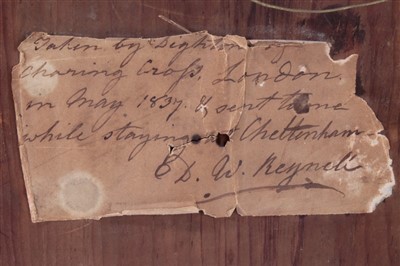 Taken by Dighton of
Charing Croſs, London,
in May 1837. & sent to me
while staying at Cheltenham
E D. W. Reynell